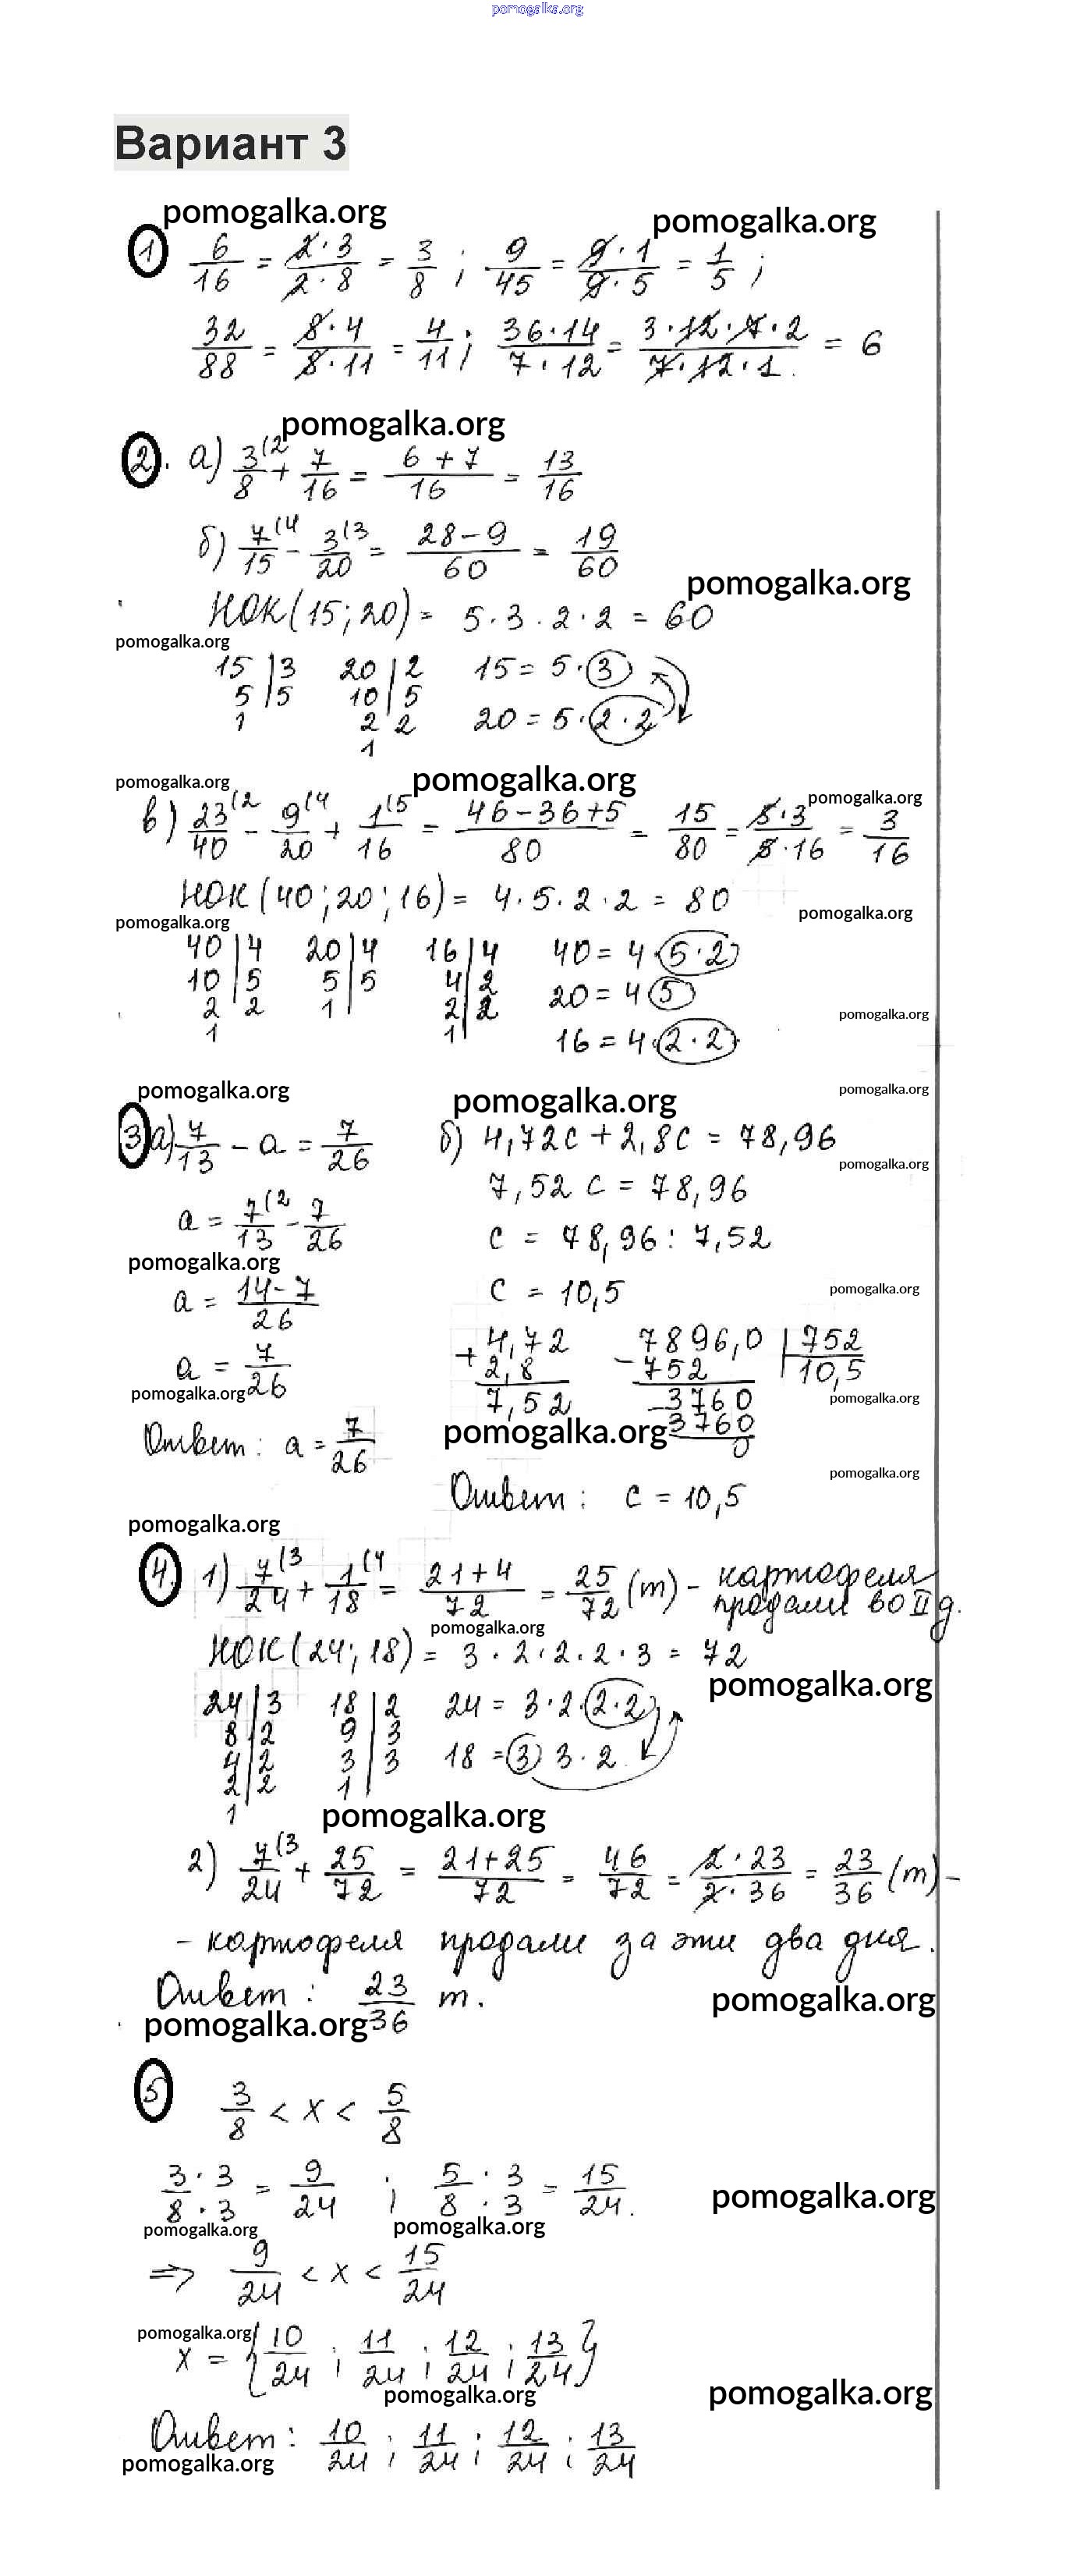 pomogalka.org
Вариант 3
pomogalka.org pomogalka.org
1 6/16 = 2·3/2·8 = 3/8 ; 9/45 = 9·1/9·5 = 1/5 ;
32/88 = 8·4/8·11 = 4/11 ; 36·14/7·12 = 3·12·7·2/7·12·1. = 6
pomogalka.org
2. а) 3/8 (2 + 7/16 = 6+7/16 = 13/16
б) 7/15 (4 - 3/20 (3 = 28-9/60 = 19/60
pomogalka.org
НОК(15;20) = 5·3·2·2 = 60
pomogalka.org
15|3 20|2 15 = 5·3
5|5 10|5
1 2 2 20 = 5·2·2
1
pomogalka.org pomogalka.org pomogalka.org
в) 23/40 (2 - 9/20 (4 + 1/16 (5 = 46-36+5/80 = 15/80 = 5·3/5·16 = 3/16
НОК(40;20;16) = 4·5·2·2 = 80
pomogalka.org pomogalka.org
40|4 20|4 16|4 40 = 4·5·2
10|5 5|5 4|2 20 = 4·5
2 2 1| 2|2
1 1| 16 = 4·2·2
pomogalka.org
pomogalka.org pomogalka.org pomogalka.org
3 а) 7/13 - a = 7/26 б) 4,72c + 2,8c = 78,96
pomogalka.org
7,52 c = 78,96
a = 7/13 (2 - 7/26 c = 78,96 : 7,52
pomogalka.org
a = 14-7/26 c = 10,5
pomogalka.org
+ 4,72 7896,0 |752
a = 7/26 2,8 -752 10,5
pomogalka.org 7,52 -3760 pomogalka.org
pomogalka.org 3760
Ответ: a = 7/26 0
pomogalka.org
Ответ: c = 10,5
pomogalka.org
4. 1) 7/24 (3 + 1/18 (4 = 21+4/72 = 25/72 (т) - картофеля
продали во II д.
pomogalka.org
НОК(24;18) = 3·2·2·2·3 = 72
pomogalka.org
24|3 18|2 24 = 3·2·2·2
8|2 9|3
4|2 3|3 18 = 3 3·2
2|2 1|
1
pomogalka.org
2) 7/24 (3 + 25/72 = 21+25/72 = 46/72 = 2·23/2·36 = 23/36 (т) -
- картофеля продали за эти два дня.
Ответ: 23/36 т. pomogalka.org
pomogalka.org
5 3/8 < x < 5/8
3·3/8·3 = 9/24 ; 5·3/8·3 = 15/24.
pomogalka.org
pomogalka.org pomogalka.org
⇒ 9/24 < x < 15/24
pomogalka.org
x = {10/24 ; 11/24 ; 12/24 ; 13/24}
pomogalka.org pomogalka.org
Ответ: 10/24 ; 11/24 ; 12/24 ; 13/24
pomogalka.org